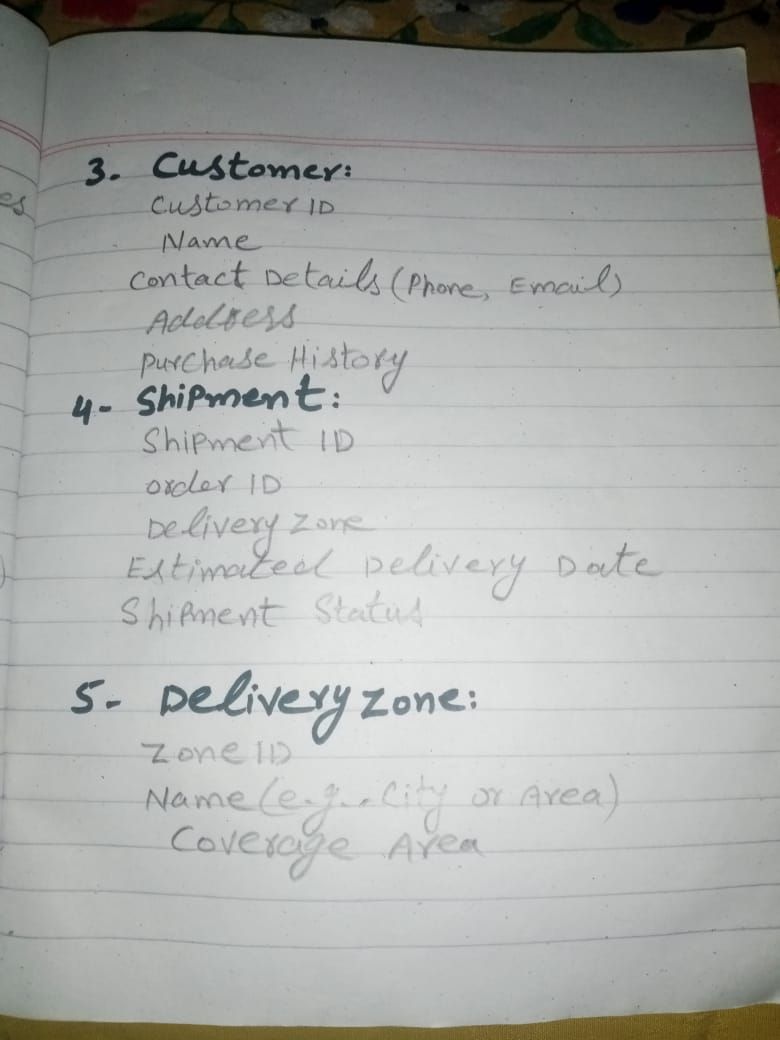 es
3. Customer:
Customer ID
Name
Contact Details (Phone, Email)
Address
Purchase History
4- Shipment:
Shipment ID
order ID
Delivery Zone
Estimated Delivery Date
Shipment Status
5- Delivery Zone:
Zone ID
Name (e.g., City or Area)
Coverage Area